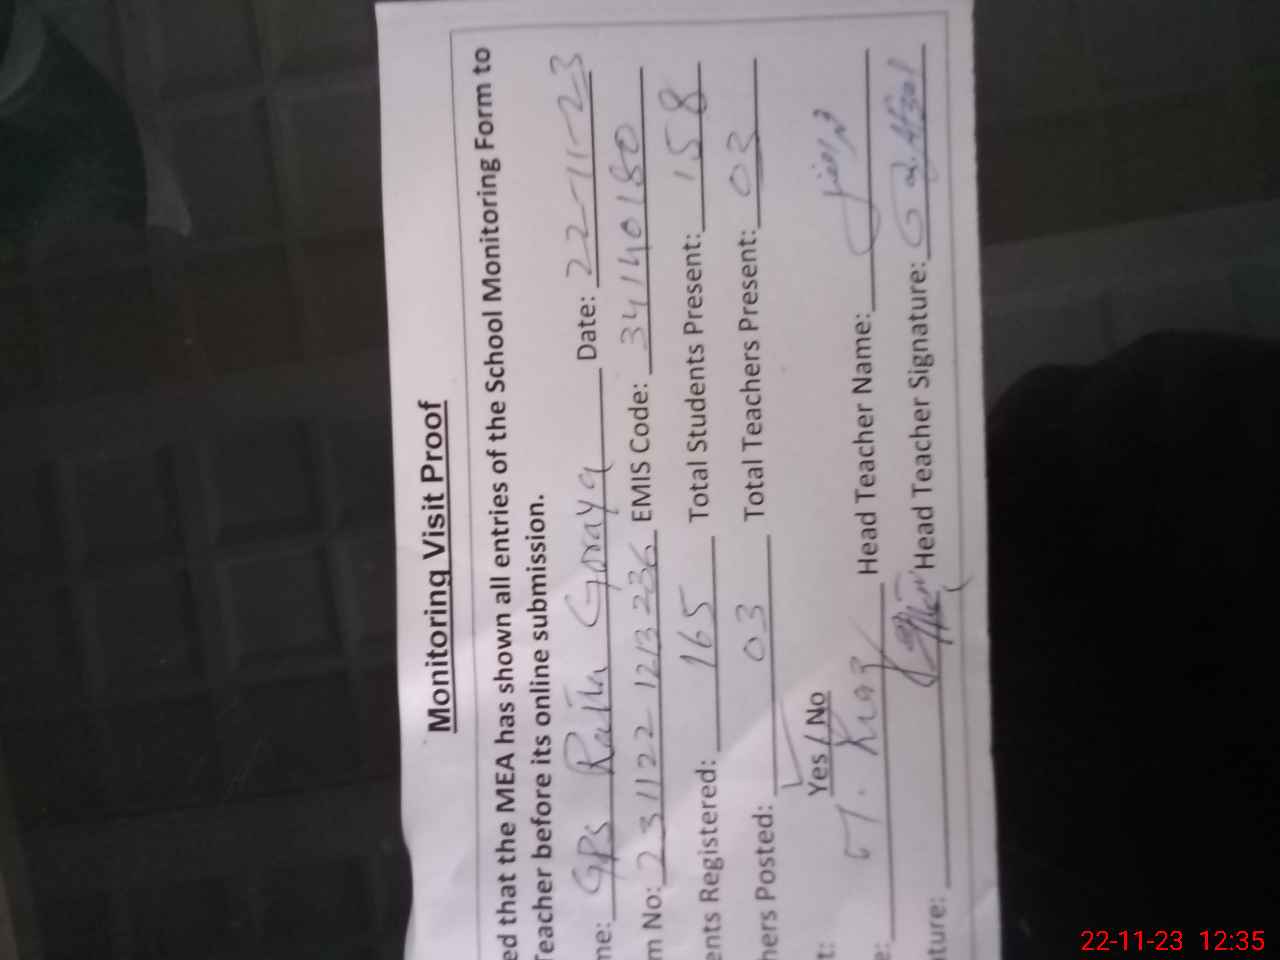 Monitoring Visit Proof
ed that the MEA has shown all entries of the School Monitoring Form to
Teacher before its online submission.
me: GPS Ratta Goraya Date: 22-11-23
m No: 231122 1213 236 EMIS Code: 34140180
ents Registered: 165 Total Students Present: 158
hers Posted: 03 Total Teachers Present: 03
t: Yes / No
e: Head Teacher Name:
ture: Head Teacher Signature:
22-11-23 12:35